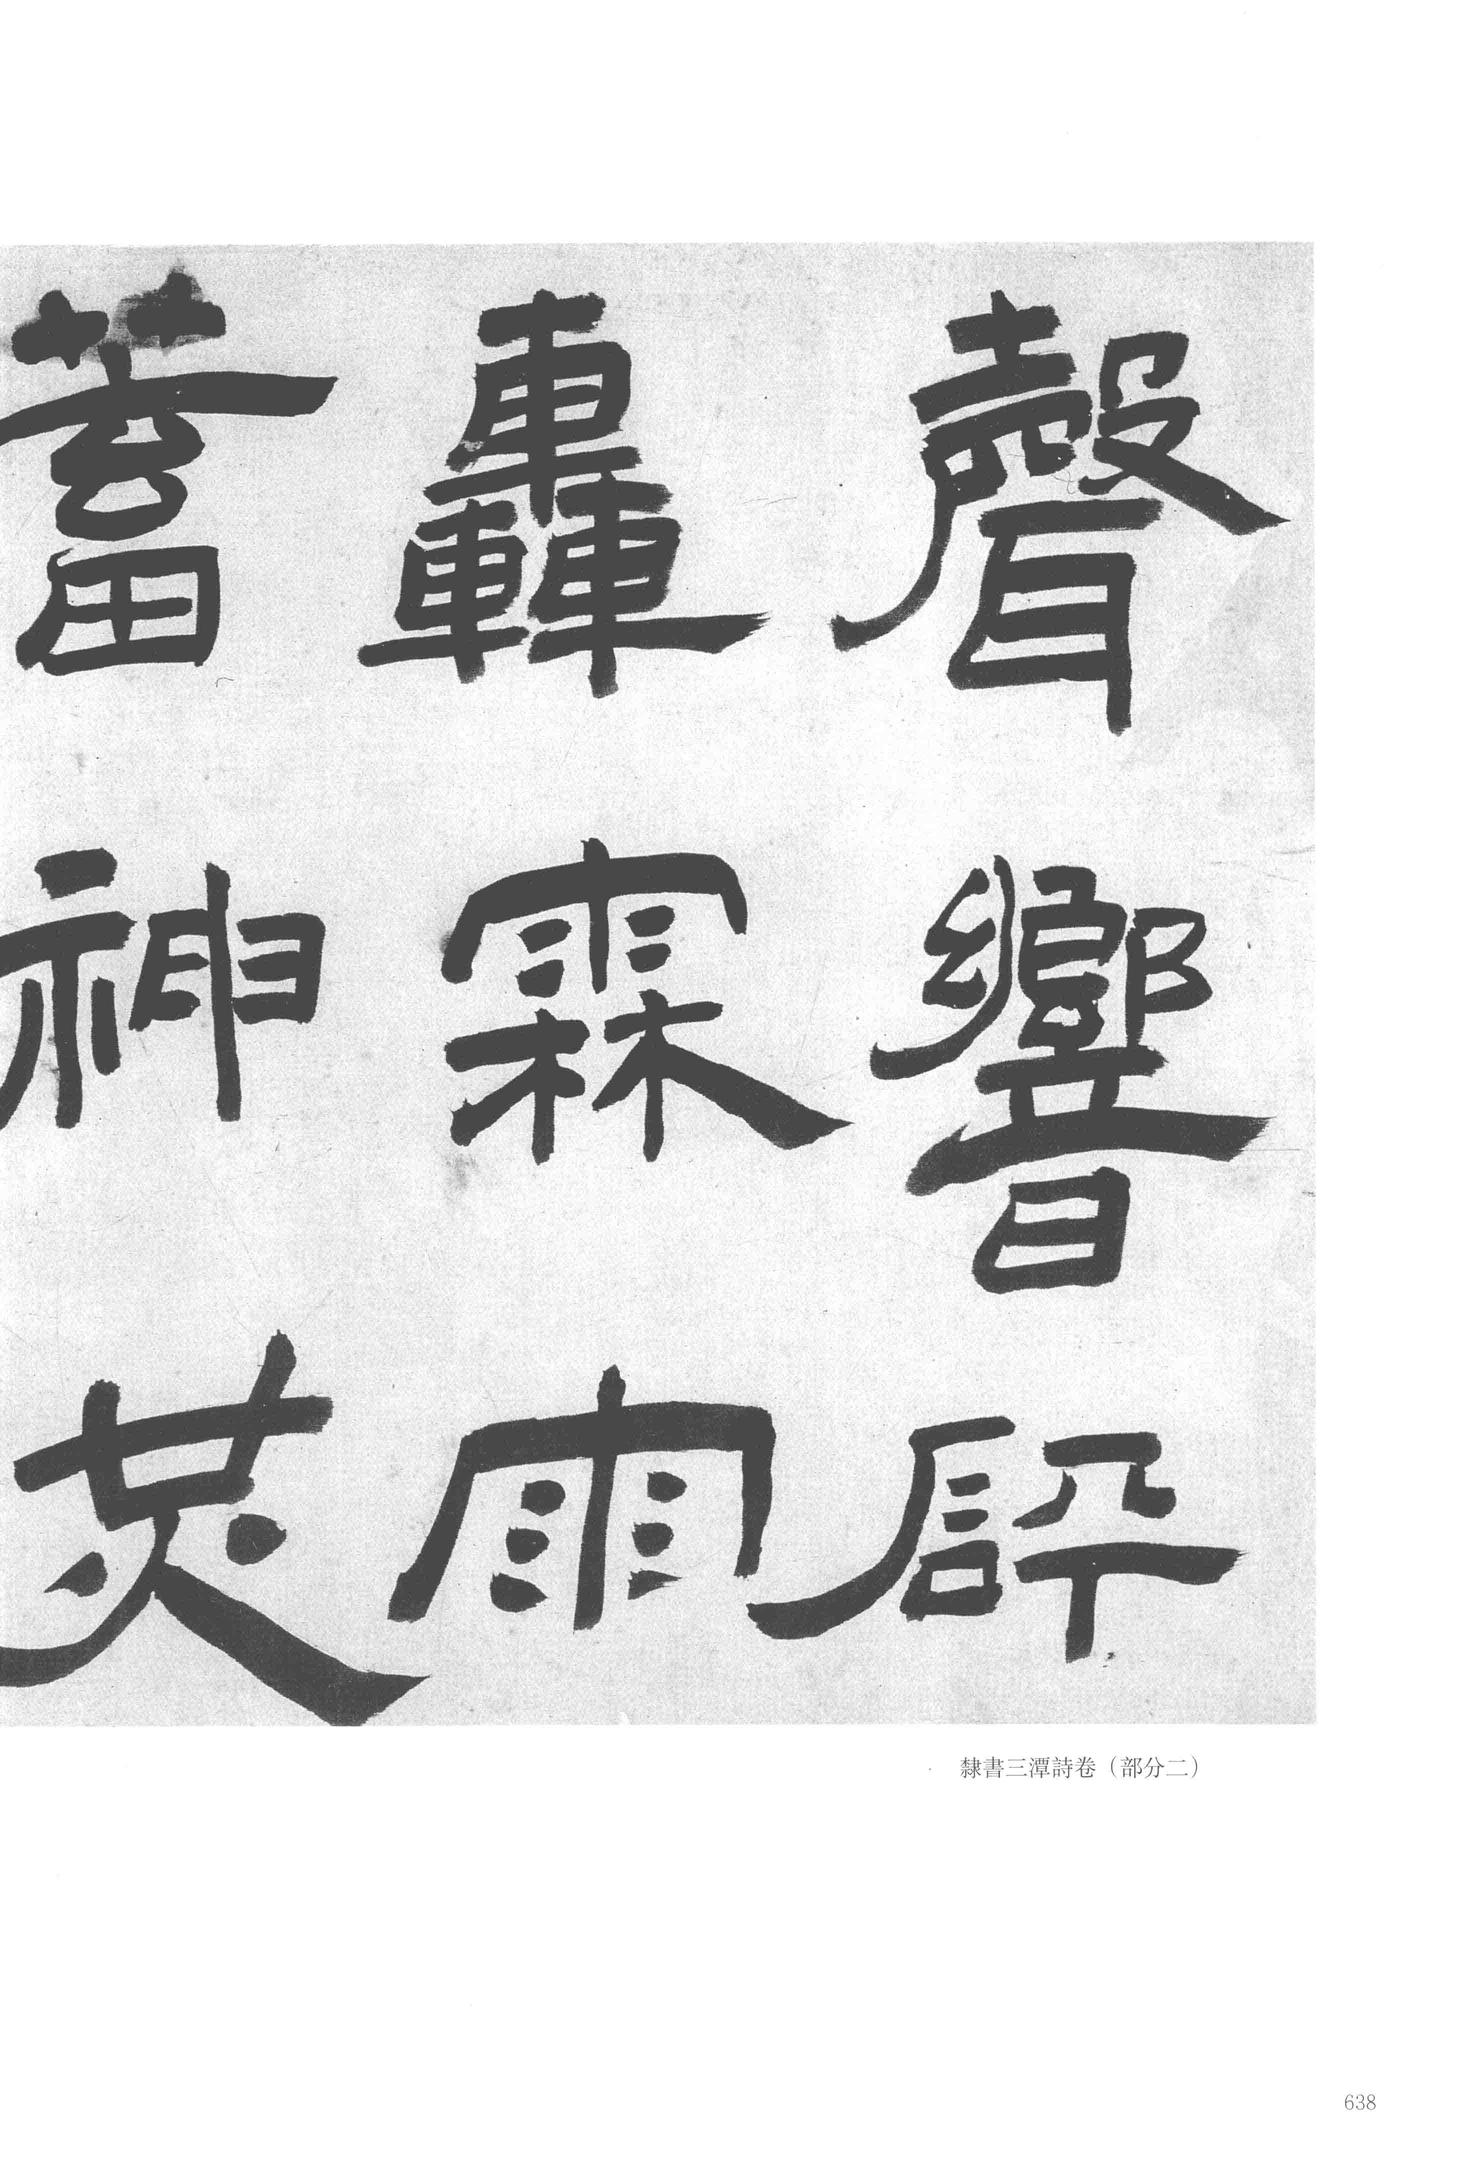 聲響
轟霖雨
蓄神炗
隸書三潭詩卷（部分二）
638